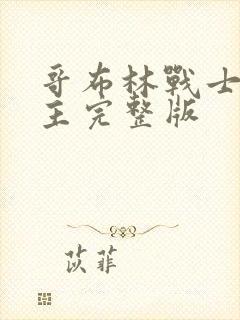 哥布林戰士
主完整版
苡菲